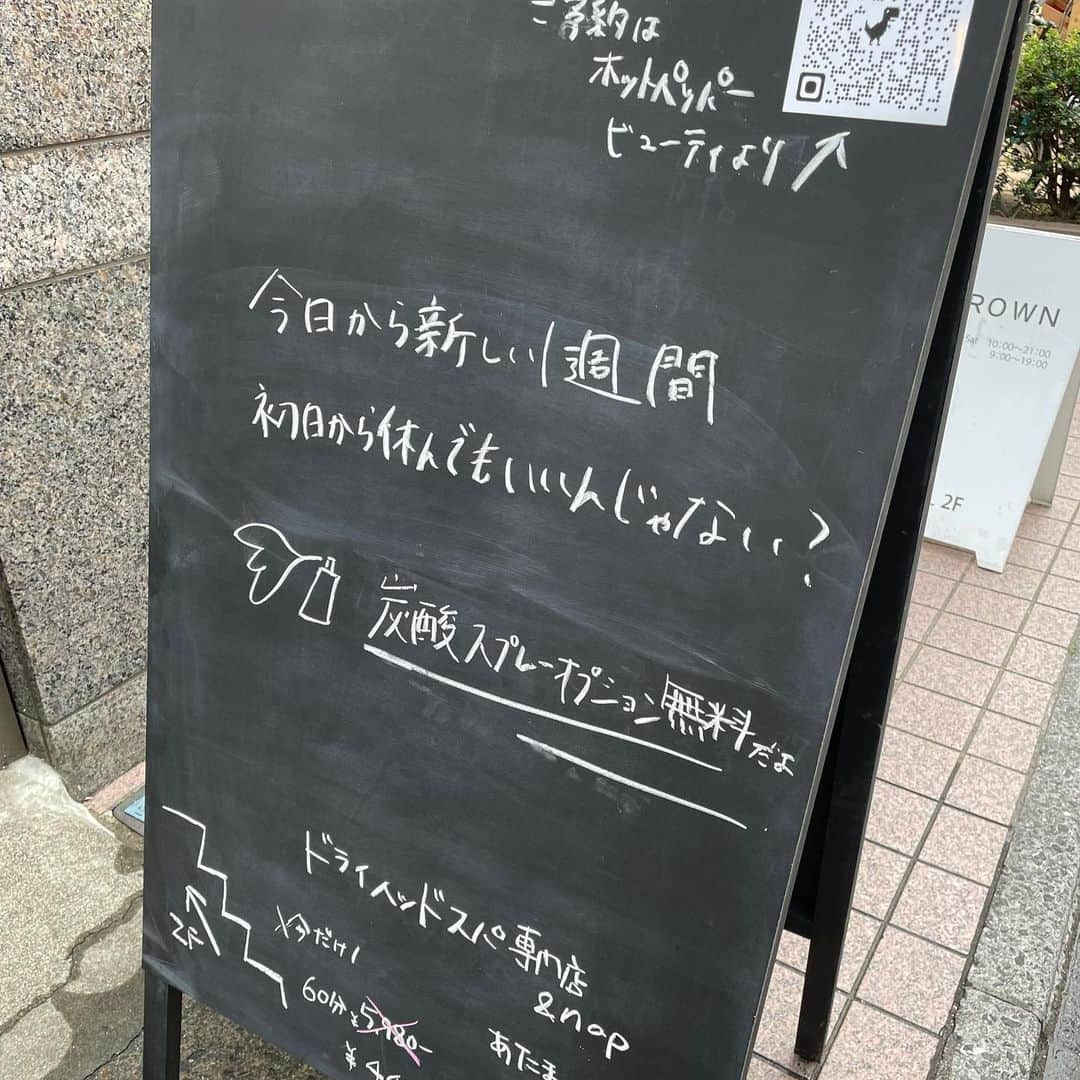 ご予約は
ホットペッパー
ビューティより
今日から新しい1週間
初日から休んでもいいんじゃない?
炭酸スプレーオプション無料だよ
ドライヘッドスパ専門店
&nap
2F
今だけ!
60分 ¥5,980-
¥
あたま
ROWN
Sat 10:00~21:00
9:00~19:00
2F